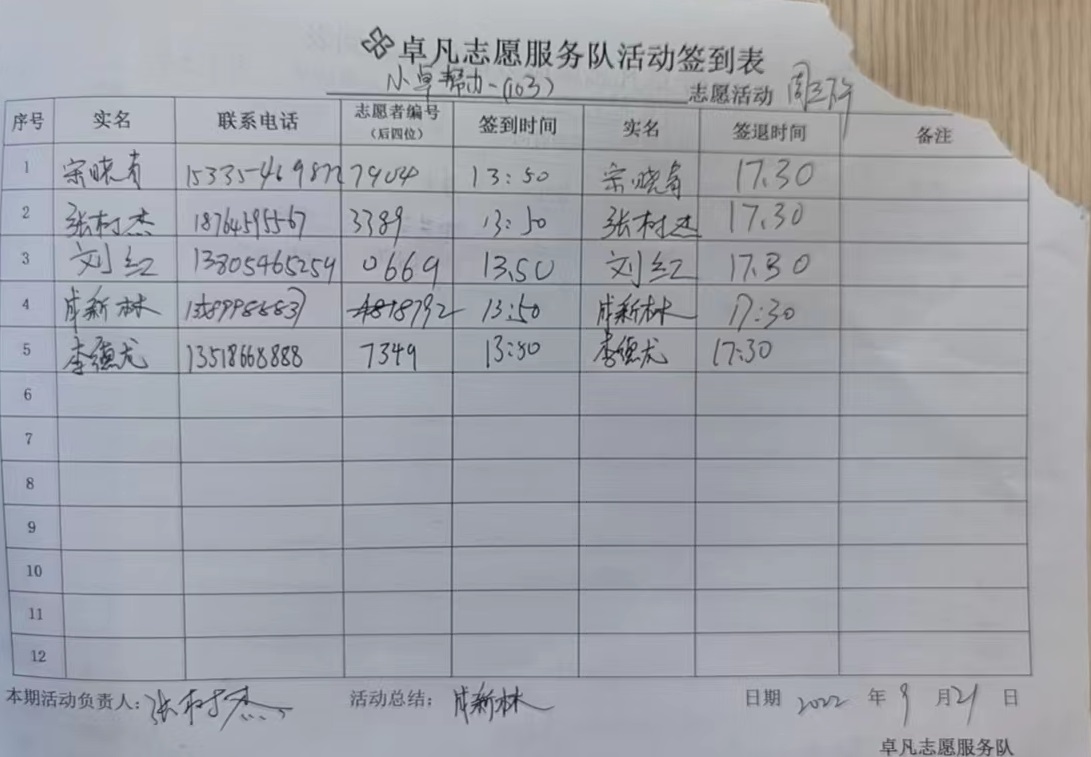 卓凡志愿服务队活动签到表
小卓帮办-(103) 志愿活动 周三下午
序号 实名 联系电话 志愿者编号(后四位) 签到时间 实名 签退时间 备注
1 宗晓青 15335469872 7904 13:50 宗晓青 17.30
2 张树杰 18764595567 3389 13:50 张树杰 17.30
3 刘红 13805465259 0669 13.50 刘红 17.30
4 成新林 8792 13:50 成新林 17:30
5 李德龙 13518668888 7349 13:50 李德龙 17:30
6
7
8
9
10
11
12
本期活动负责人:张树杰 活动总结:成新林 日期 2022 年 9 月 21 日
卓凡志愿服务队